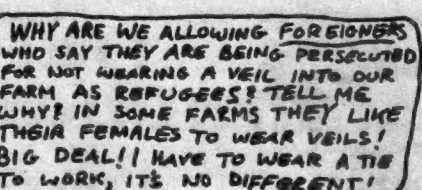 WHY ARE WE ALLOWING FOREIGNERS
WHO SAY THEY ARE BEING PERSECUTED
FOR NOT WEARING A VEIL INTO OUR
FARM AS REFUGEES? TELL ME
WHY? IN SOME FARMS THEY LIKE
THEIR FEMALES TO WEAR VEILS!
BIG DEAL! I HAVE TO WEAR A TIE
TO WORK, IT'S NO DIFFERENT!